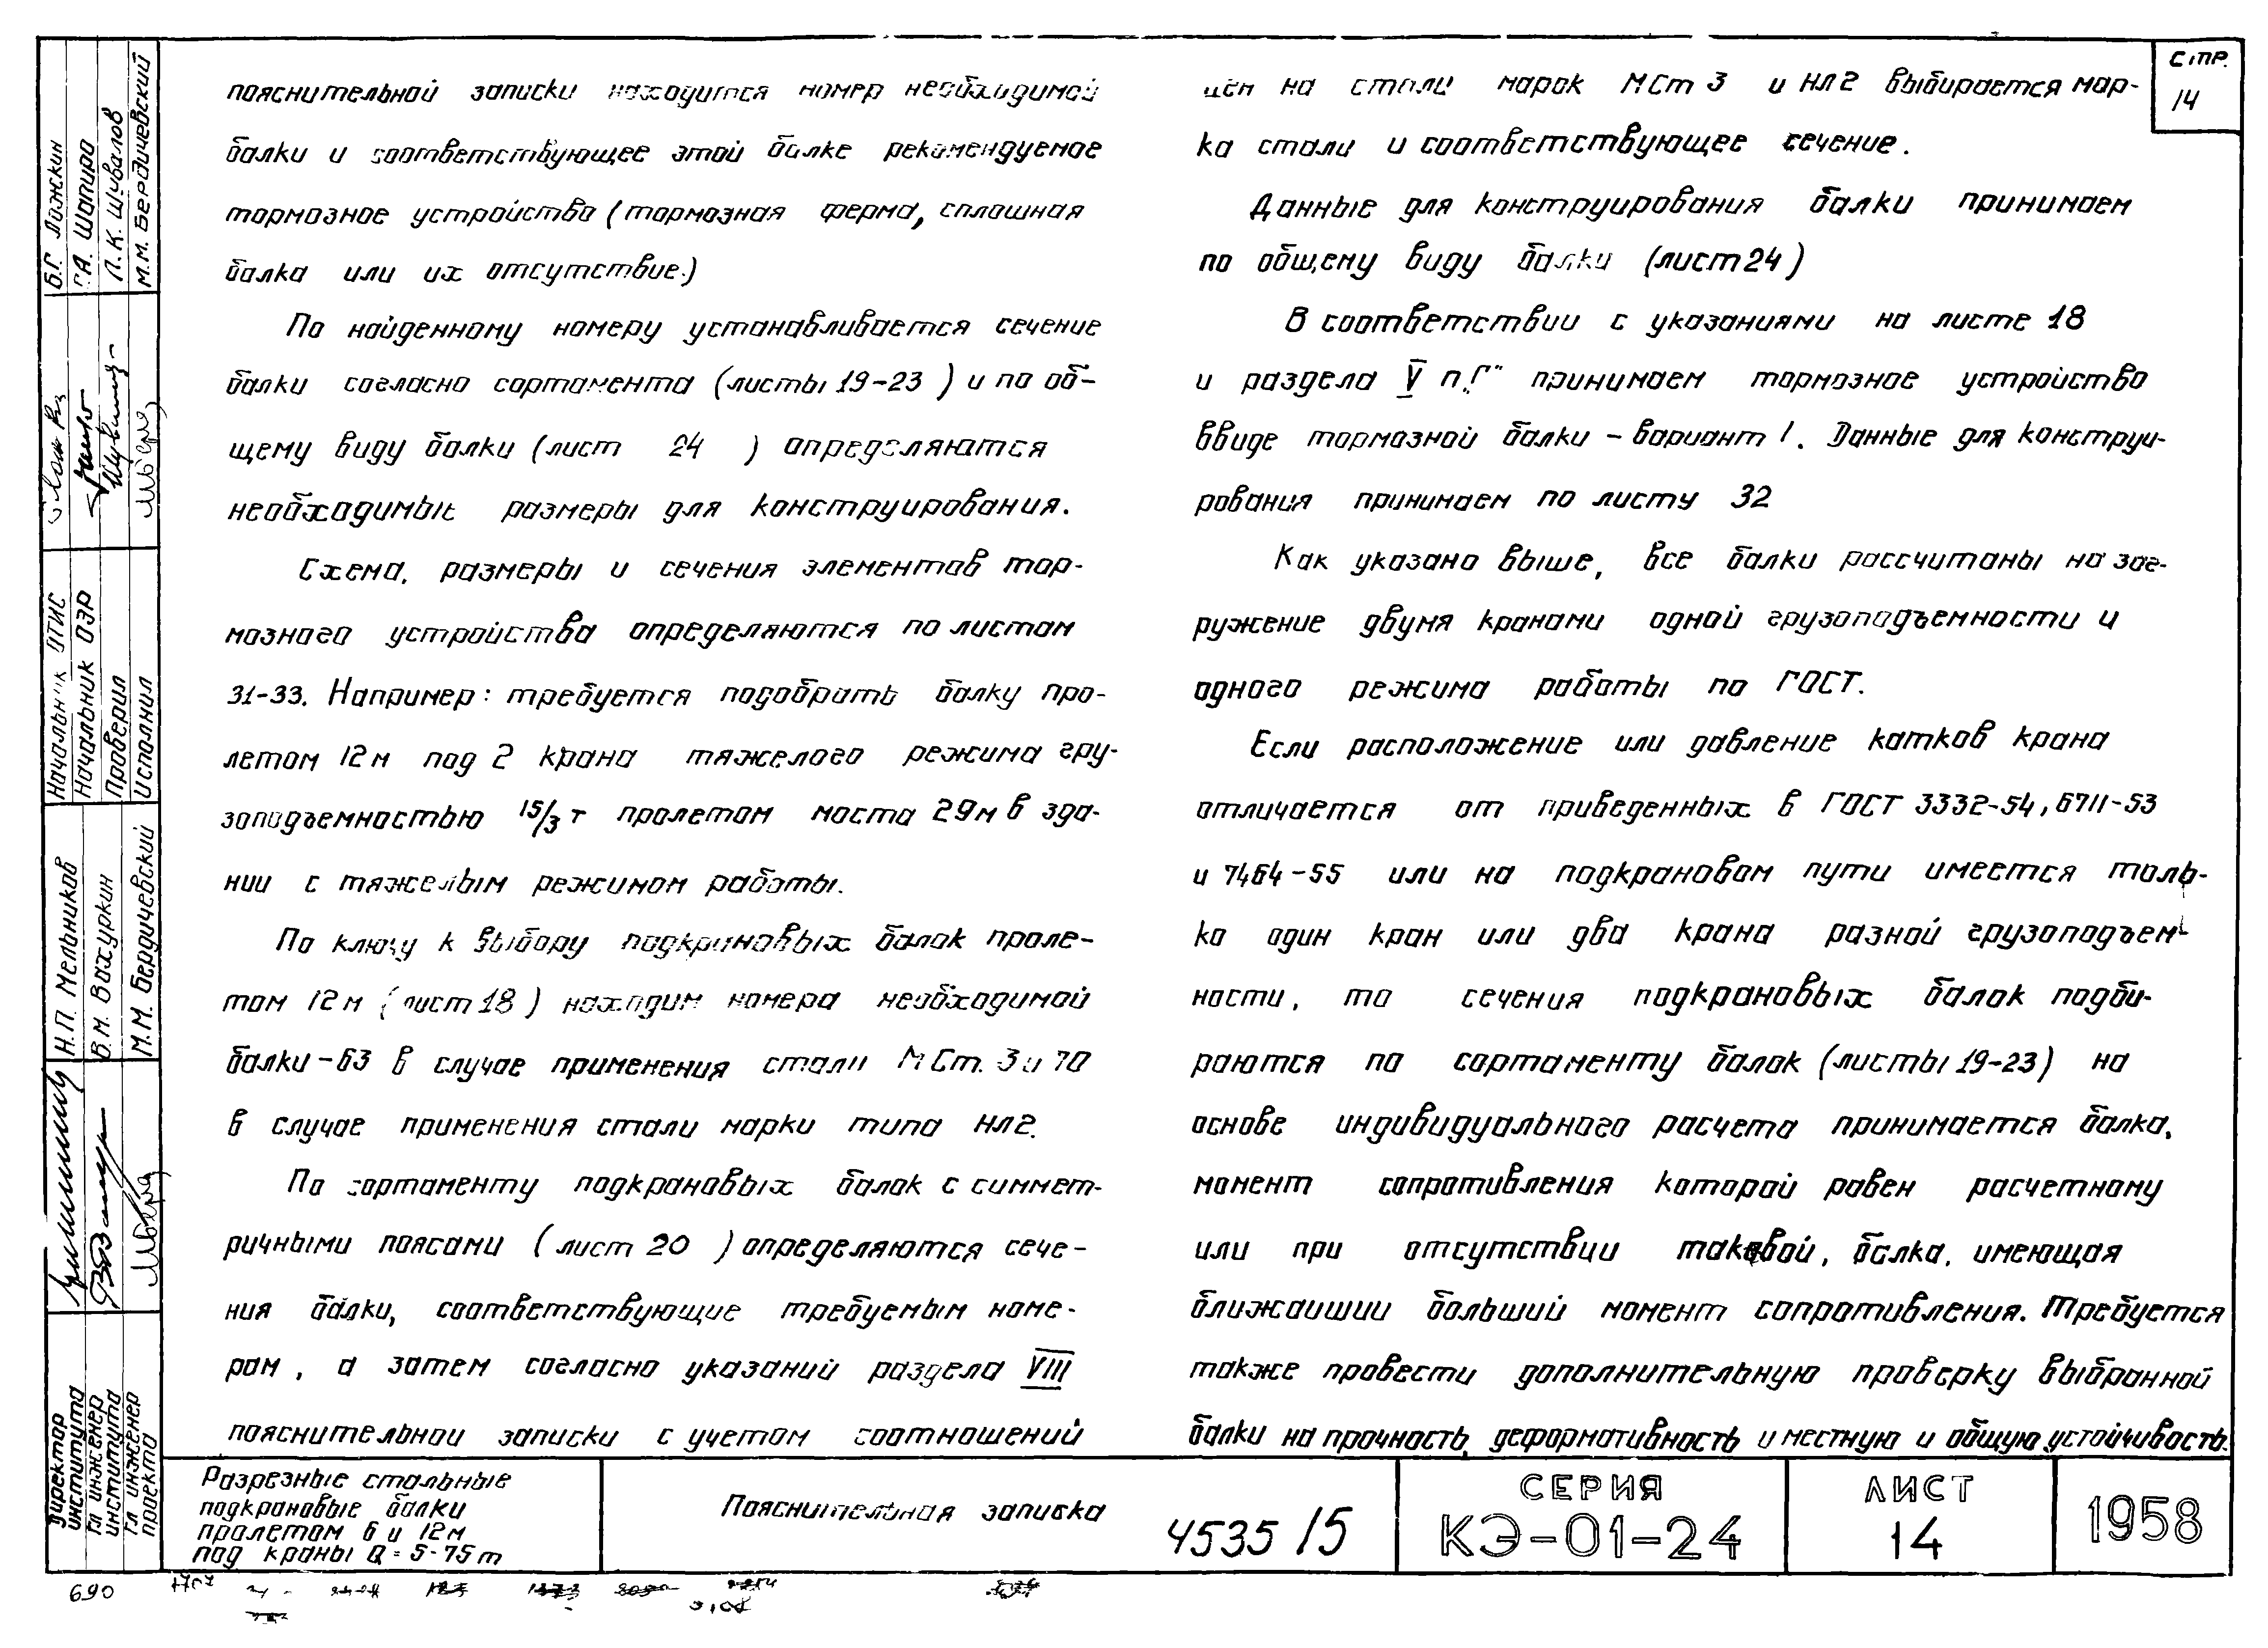 пояснительной записки находится номер необходимой
балки и соответствующее этой балке рекомендуемое
тормозное устройство (тормозная ферма, сплошная
балка или их отсутствие.)
По найденному номеру устанавливается сечение
балки согласно сортамента (листы 19-23) и по об-
щему виду балки (лист 24 ) определяются
необходимые размеры для конструирования.
Схема, размеры и сечения элементов тор-
мозного устройства определяются по листам
31-33. Например: требуется подобрать балку про-
летом 12м под 2 крана тяжелого режима гру-
зоподъемностью 15/3 т пролетом моста 29м в зда-
нии с тяжелым режимом работы.
По ключу к выбору подкрановых балок проле-
том 12м (лист 18) находим номера необходимой
балки-63 в случае применения стали МСт. 3 и 70
в случае применения стали марки типа НЛ2.
По сортаменту подкрановых балок с симмет-
ричными поясами (лист 20 ) определяются сече-
ния балки, соответствующие требуемым номе-
рам, а затем согласно указаний раздела VIII
пояснительной записки с учетом соотношений
цен на стали марок МСт 3 и НЛ2 выбирается мар-
ка стали и соответствующее сечение.
Данные для конструирования балки принимаем
по общему виду балки (лист 24)
В соответствии с указаниями на листе 18
и раздела V п.„Г" принимаем тормозное устройство
ввиде тормозной балки - вариант I. Данные для конструи-
рования принимаем по листу 32
Как указано выше, все балки рассчитаны на заг-
ружение двумя кранами одной грузоподъемности и
одного режима работы по ГОСТ.
Если расположение или давление катков крана
отличается от приведенных в ГОСТ 3332-54, 6711-53
и 7464-55 или на подкрановом пути имеется толь-
ко один кран или два крана разной грузоподъем-
ности, то сечения подкрановых балок подби-
раются по сортаменту балок (листы 19-23) на
основе индивидуального расчета принимается балка,
момент сопротивления которой равен расчетному
или при отсутствии таковой, балка, имеющая
ближайший больший момент сопротивления. Требуется
также провести дополнительную проверку выбранной
балки на прочность, деформативность и местную и общую устойчивость.
Стр.
14
Б.Г. Ложкин
Г.А. Шапиро
Л.К. Шувалов
М.М. Бердичевский
Начальник ОТИС
Начальник ОЭР
Проверил
Исполнил
Н.П. Мельников
В.М. Вахуркин
М.М. Бердичевский
Директор института
Гл инженер института
Гл инженер проекта
Разрезные стальные
подкрановые балки
пролетом 6 и 12м
под краны Q = 5-75т
Пояснительная записка
4535/5
СЕРИЯ
КЭ-01-24
ЛИСТ
14
1958
690